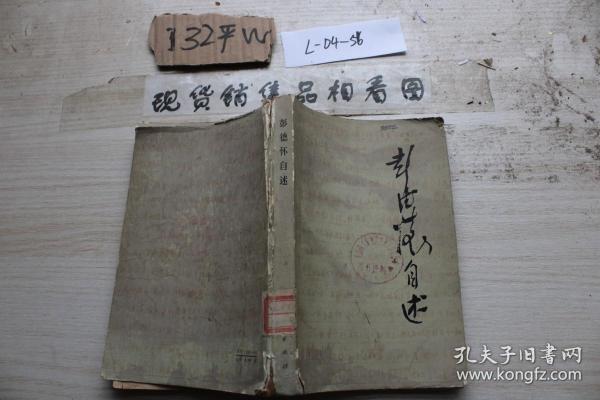 132平W
L-04-56
现货销售品相看图
彭德怀自述
彭德怀自述
孔夫子旧书网
www.kongfz.com